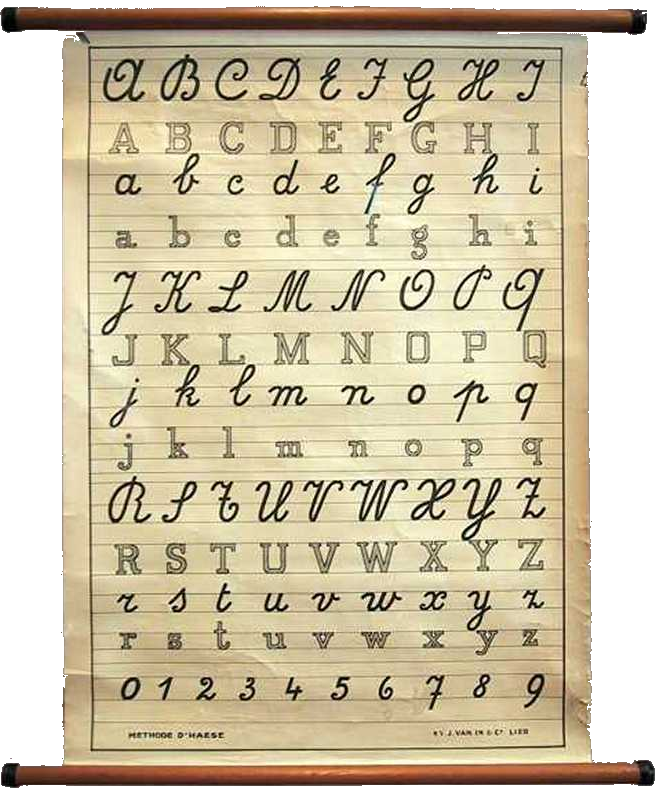 A B C D E F G H I
A B C D E F G H I
a b c d e f g h i
a b c d e f g h i
J K L M N O P Q
J K L M N O P Q
j k l m n o p q
j k l m n o p q
R S T U V W X Y Z
R S T U V W X Y Z
r s t u v w x y z
r s t u v w x y z
0 1 2 3 4 5 6 7 8 9
METHODE D'HAESE J. VAN IN & Cº LIER